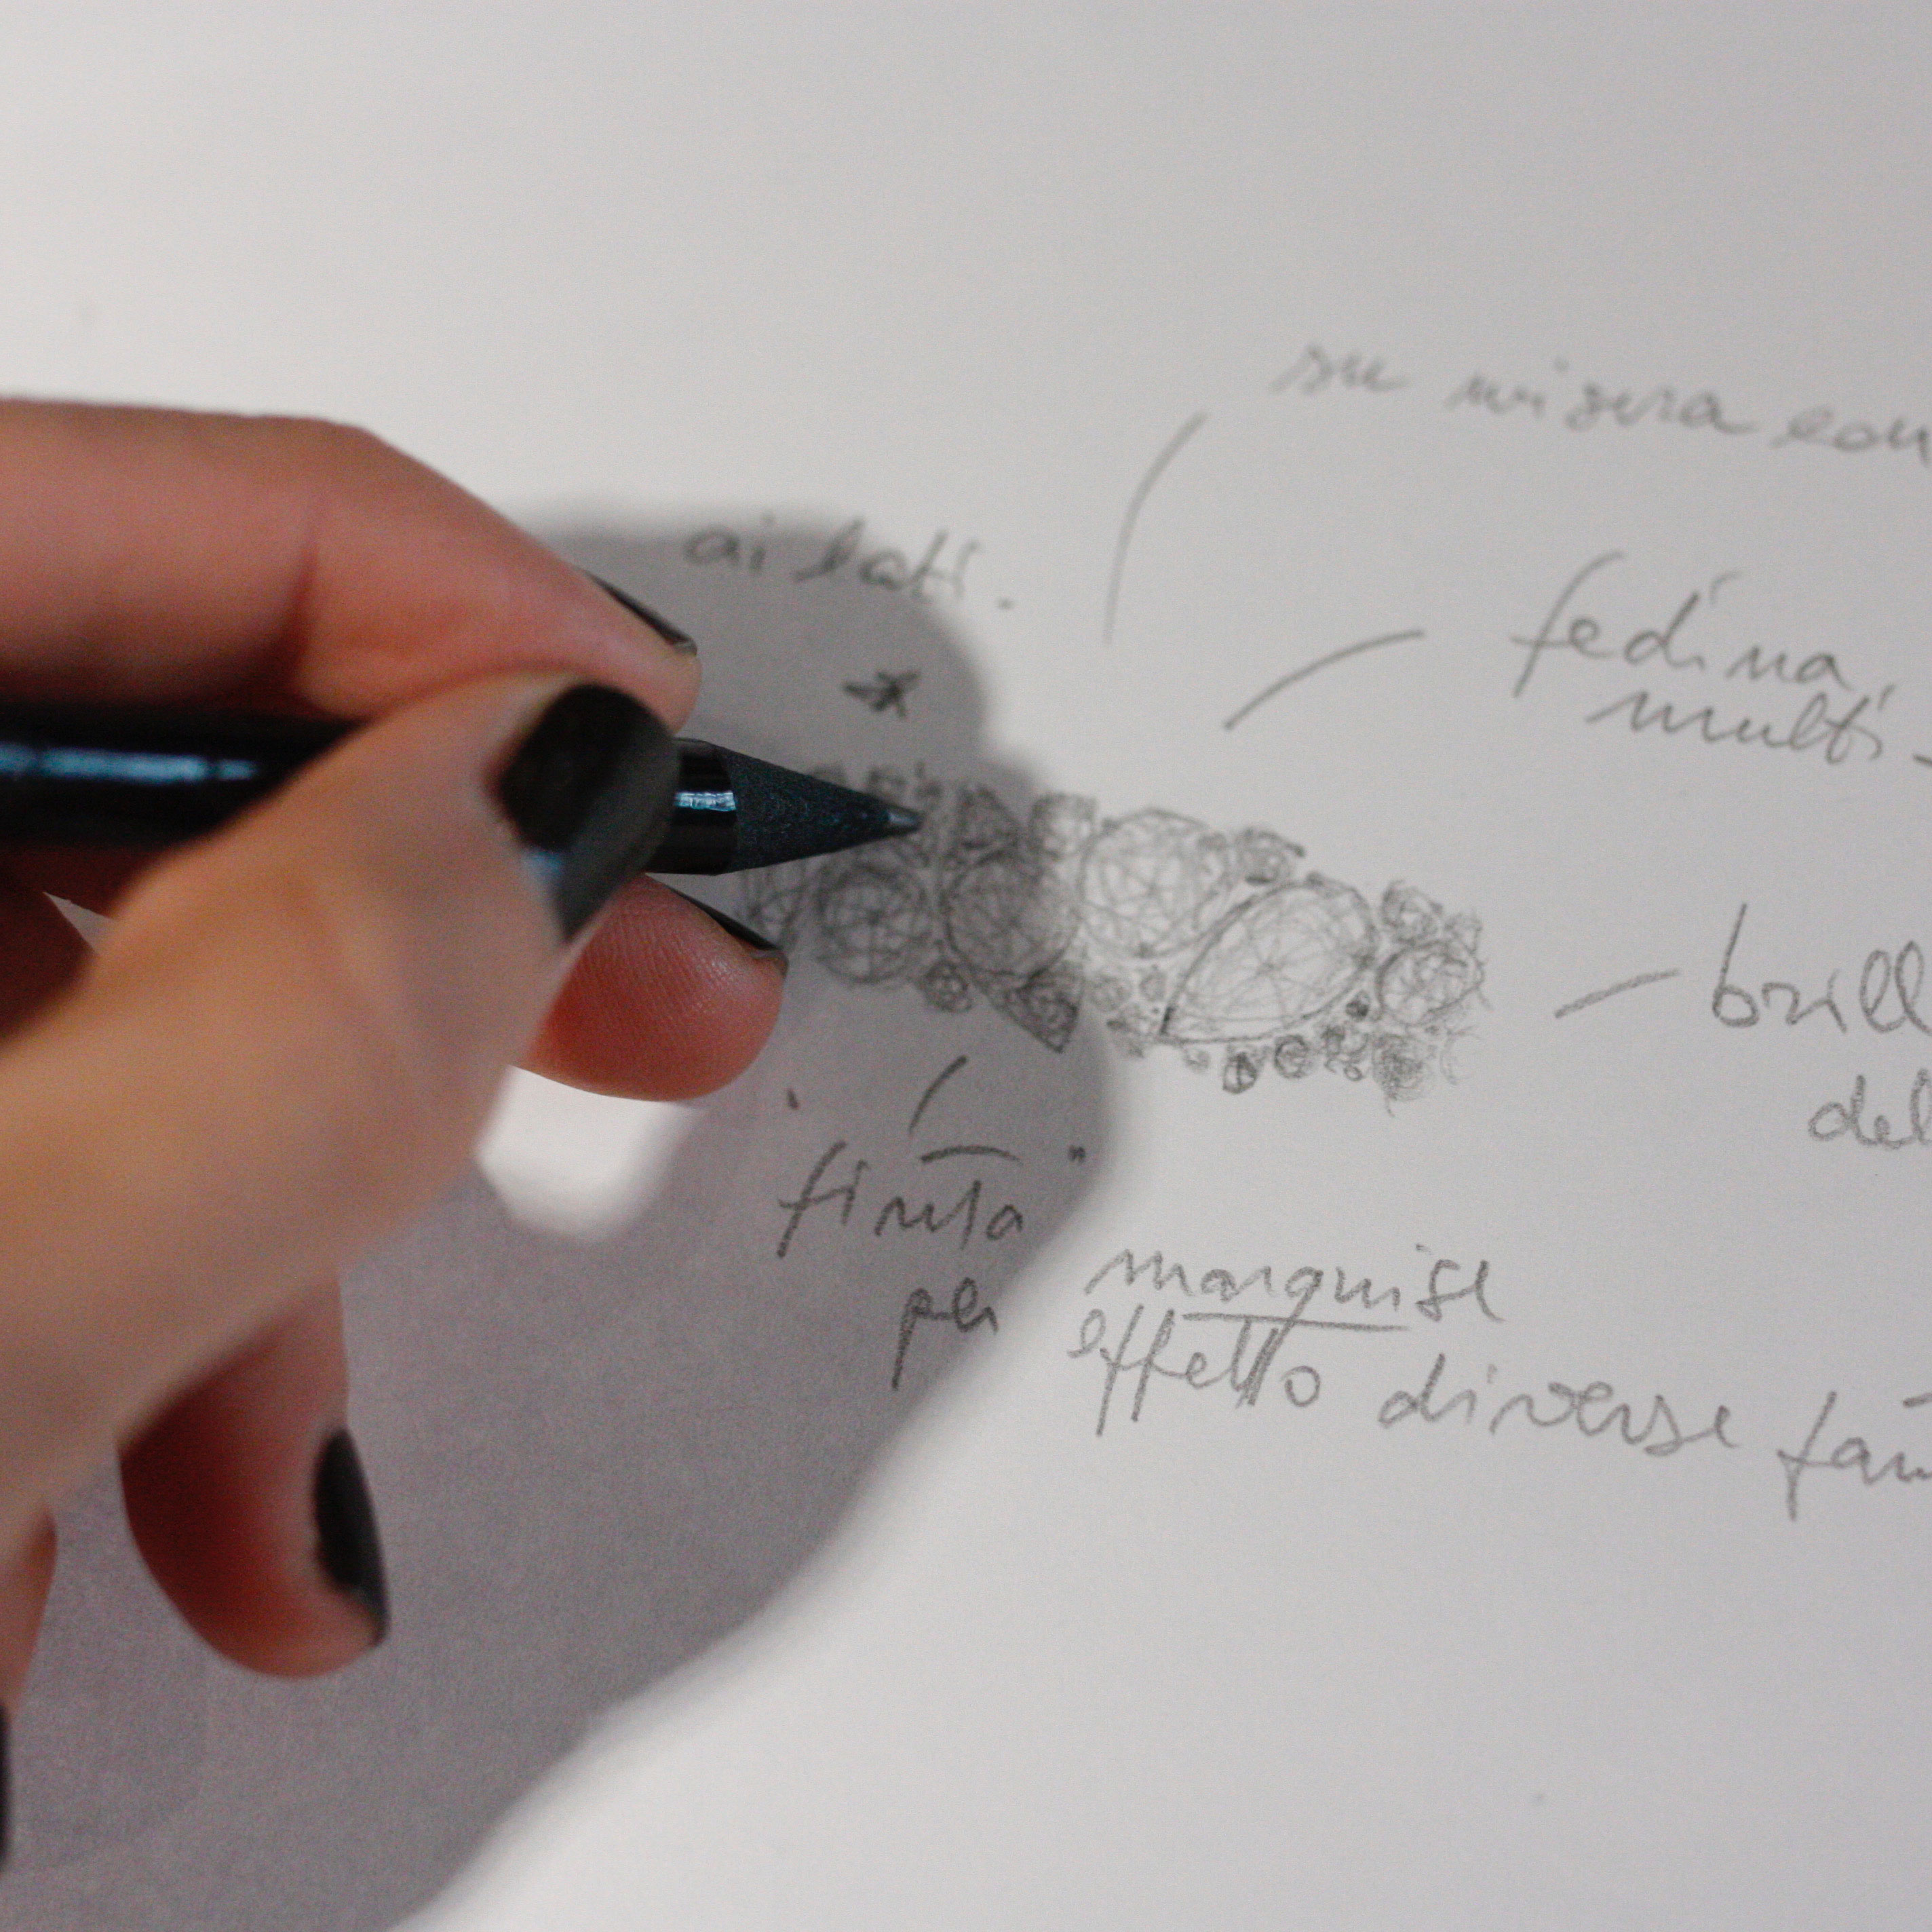 su misura con
ai lati.
fedina,
multi-
brill
del
"finta"
marquise
per effetto diverse fan